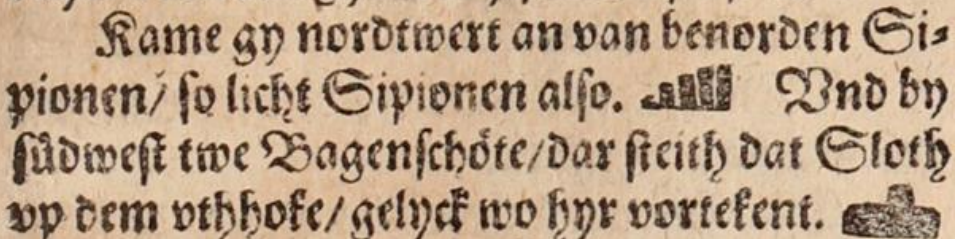 Kame gy nordtwert an van benorden Si⸗
pionen/ so licht Sipionen also. Vnd by
suͤdwest twe Bagenschoͤte/dar steith dat Sloth
vp dem vthhoke/ gelyck wo hyr vortekent.